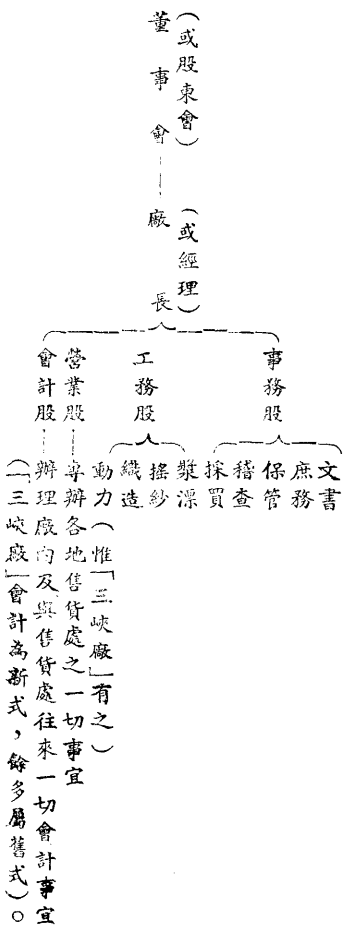 （或股東會）
董事會——廠長
（或經理）
事務股
文書
庶務
保管
稽查
採買
工務股
漿漂
搖紗
織造
動力（惟「三峽廠」有之）
營業股——專辦各地售貨處之一切事宜
會計股——辦理廠內及與售貨處往來一切會計事宜
（「三峽廠」會計為新式，餘多屬舊式）。